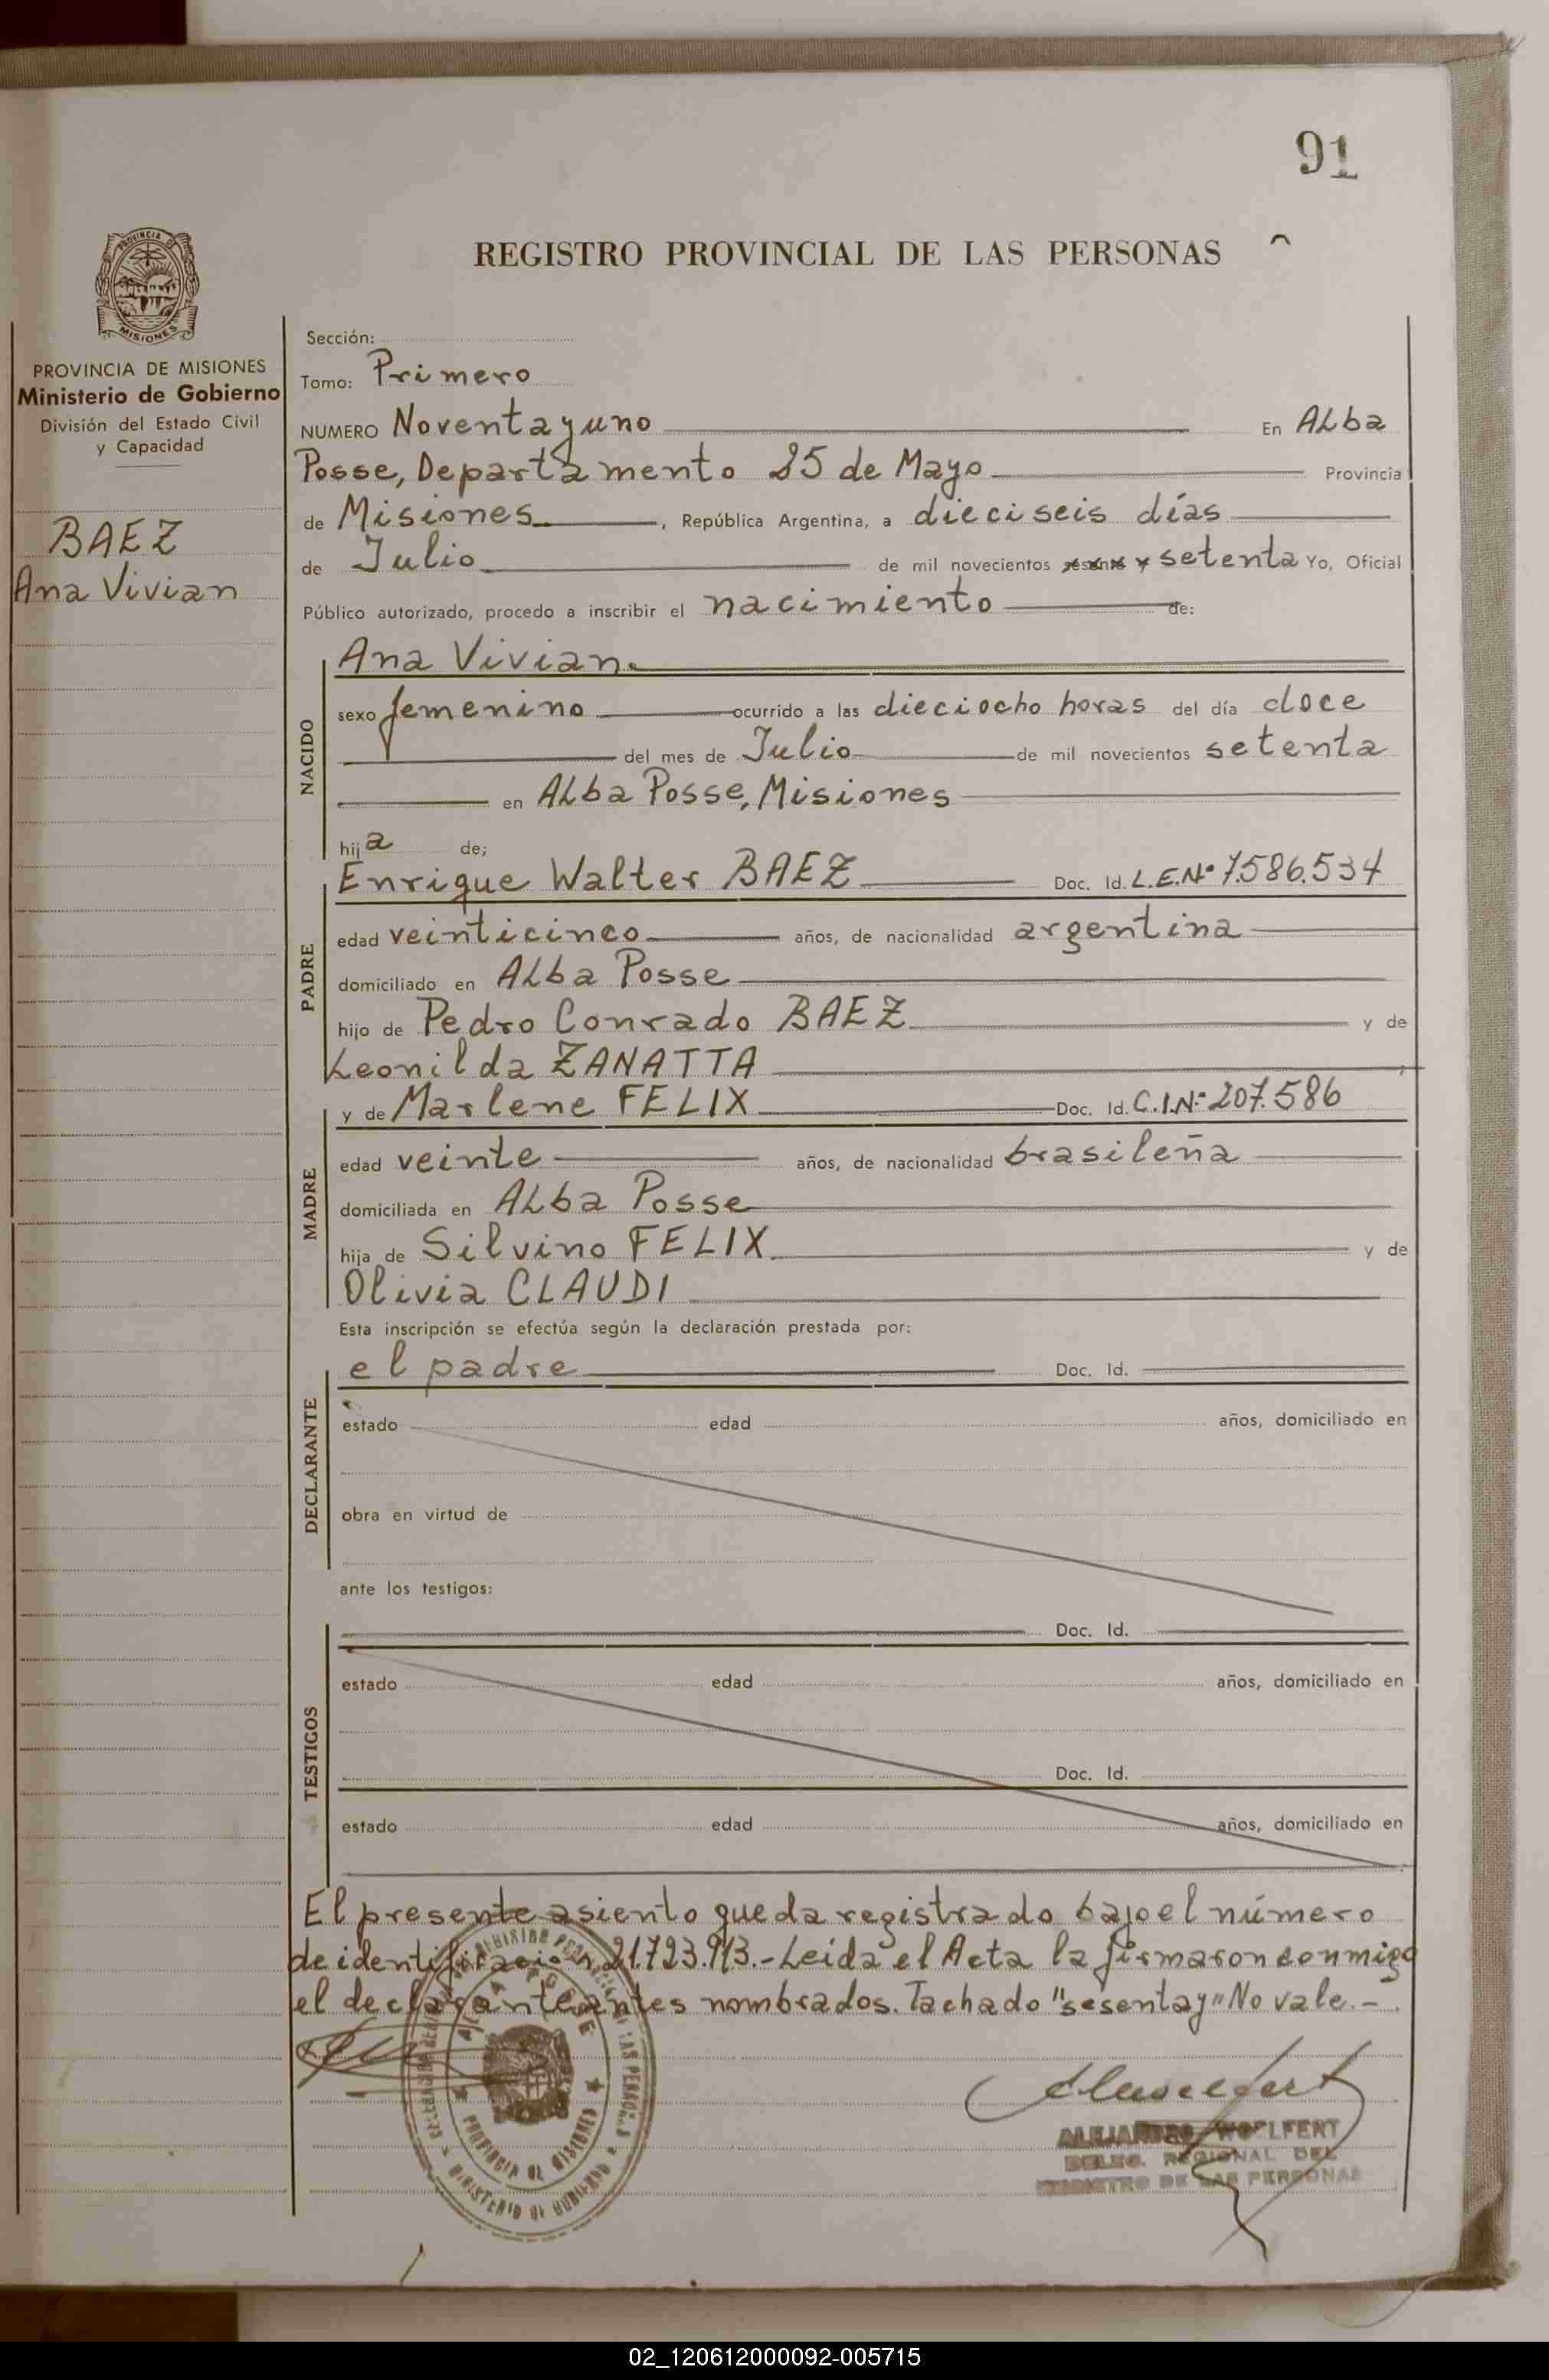 91
REGISTRO PROVINCIAL DE LAS PERSONAS
PROVINCIA DE
MISIONES
PROVINCIA DE MISIONES
Ministerio de Gobierno
División del Estado Civil
y Capacidad
BAEZ
Ana Vivian
Sección:
Tomo: Primero
NUMERO Noventa y uno En Alba
Posse, Departamento 25 de Mayo Provincia
de Misiones, República Argentina, a dieciseis días
de Julio de mil novecientos sesenta y setenta Yo, Oficial
Público autorizado, procedo a inscribir el nacimiento de:
NACIDO
Ana Vivian.
sexo femenino ocurrido a las dieciocho horas del día doce
del mes de Julio de mil novecientos setenta
en Alba Posse, Misiones
hija de;
PADRE
Enrique Walter BAEZ Doc. Id. L.E.Nº 7.586.534
edad veinticinco años, de nacionalidad argentina
domiciliado en Alba Posse
hijo de Pedro Conrado BAEZ y de
Leonilda ZANATTA
MADRE
y de Marlene FELIX Doc. Id. C.I.Nº 207.586
edad veinte años, de nacionalidad brasileña
domiciliada en Alba Posse
hija de Silvino FELIX y de
Olivia CLAUDI
Esta inscripción se efectúa según la declaración prestada por:
DECLARANTE
el padre Doc. Id.
estado edad años, domiciliado en
obra en virtud de
ante los testigos:
TESTIGOS
Doc. Id.
estado edad años, domiciliado en
Doc. Id.
estado edad años, domiciliado en
El presente asiento queda registrado bajo el número
de identificación 21.723.913.- Leída el Acta la firmaron conmigo
el declarante antes nombrados. Tachado "sesenta y" No vale.-
ALBA POSSE
PROVINCIA DE MISIONES
MINISTERIO DE GOBIERNO
ALEJANDRO WOELFERT
DELEG. REGIONAL DEL
REGISTRO DE LAS PERSONAS
02_120612000092-005715